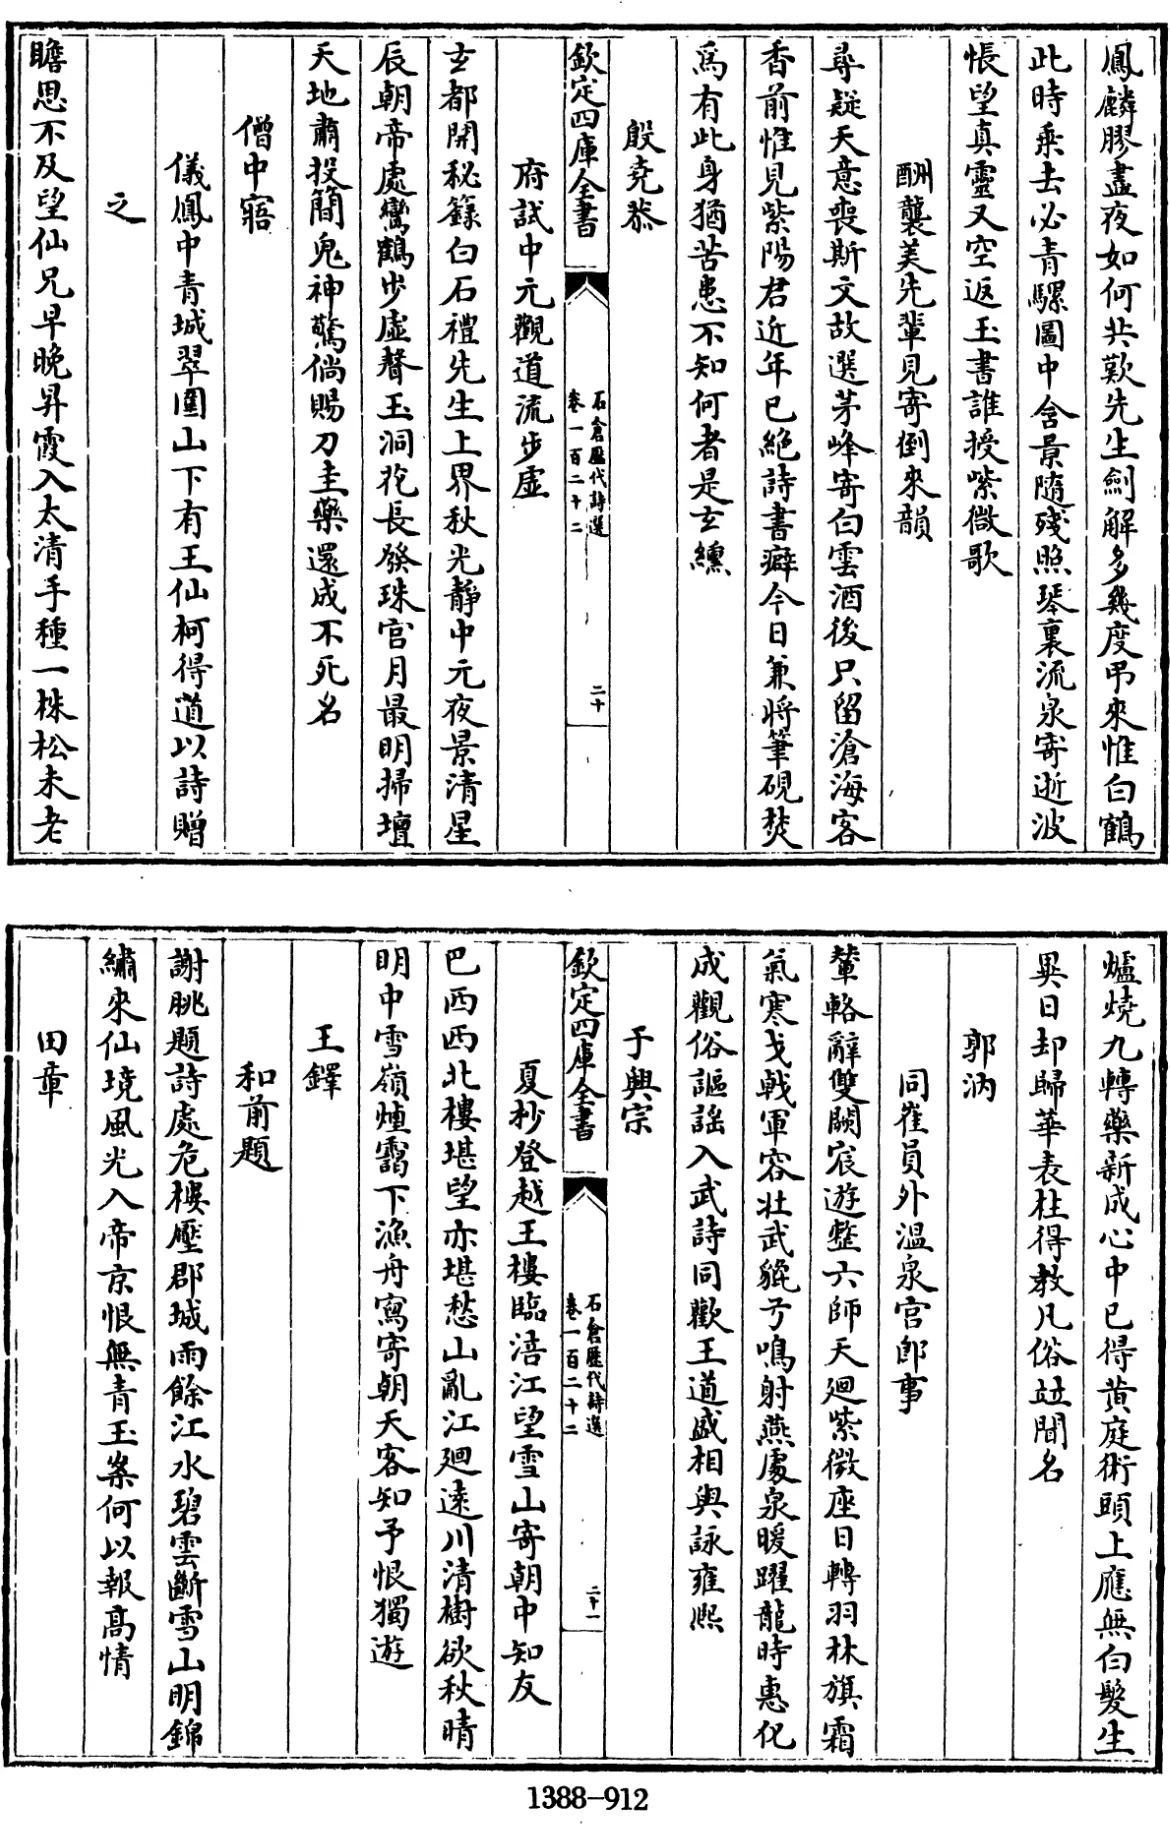 鳳麟膠盡夜如何共歎先生劍解多幾度弔來惟白鶴
此時乗去必青騾圖中含景隨殘照琴裏流泉寄逝波
悵望真靈又空返玉書誰授紫微歌
酬襲美先輩見寄倒來韻
尋疑天意喪斯文故選茅峰寄白雲酒後只留滄海客
香前惟見紫陽君近年已絶詩書癖今日兼將筆硯焚
爲有此身猶苦患不知何者是玄纁
欽定四庫全書
石倉歷代詩選
卷一百二十二
二十
殷堯恭
府試中元觀道流步虛
玄都開秘籙白石禮先生上界秋光靜中元夜景清星
辰朝帝處鸞鶴步虛聲玉洞花長發珠宮月最明掃壇
天地肅投簡鬼神驚倘賜刀圭藥還成不死名
僧中寤
儀鳳中青城翠圍山下有王仙柯得道以詩贈
之
瞻思不及望仙兄早晚昇霞入太清手種一株松未老
爐燒九轉藥新成心中已得黄庭術頭上應無白髮生
異日却歸華表柱得教凡俗竝聞名
郭汭
同崔員外溫泉宮郎事
輦輅辭雙闕宸遊整六師天廻紫微座日轉羽林旗霜
氣寒戈戟軍容壯武貔弓鳴射燕處泉暖躍龍時惠化
成觀俗謳謡入武詩同歡王道盛相與詠雍熙
欽定四庫全書
石倉歷代詩選
卷一百二十二
二十一
于興宗
夏杪登越王樓臨涪江望雪山寄朝中知友
巴西西北樓堪望亦堪愁山亂江廻遠川清樹欲秋晴
明中雪嶺煙靄下漁舟寫寄朝天客知予恨獨遊
王鐸
和前題
謝朓題詩處危樓壓郡城雨餘江水碧雲斷雪山明錦
繡來仙境風光入帝京恨無青玉案何以報高情
田章
1388-912